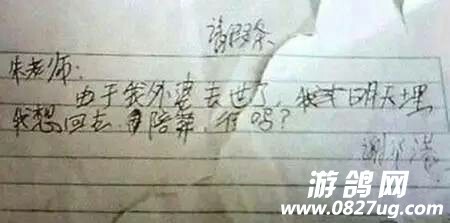 请假条
朱老师：
由于我外婆去世了，我 明天埋
我想回去 陪葬，行吗？
谢
游鸽网
www.0827ug.com